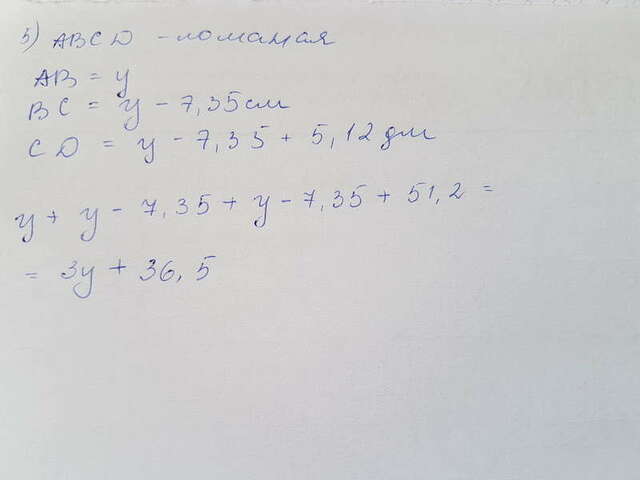 5) ABCD - ломаная
AB = y
BC = y - 7,35 см
CD = y - 7,35 + 5,12 дм
y + y - 7,35 + y - 7,35 + 51,2 =
= 3y + 36,5